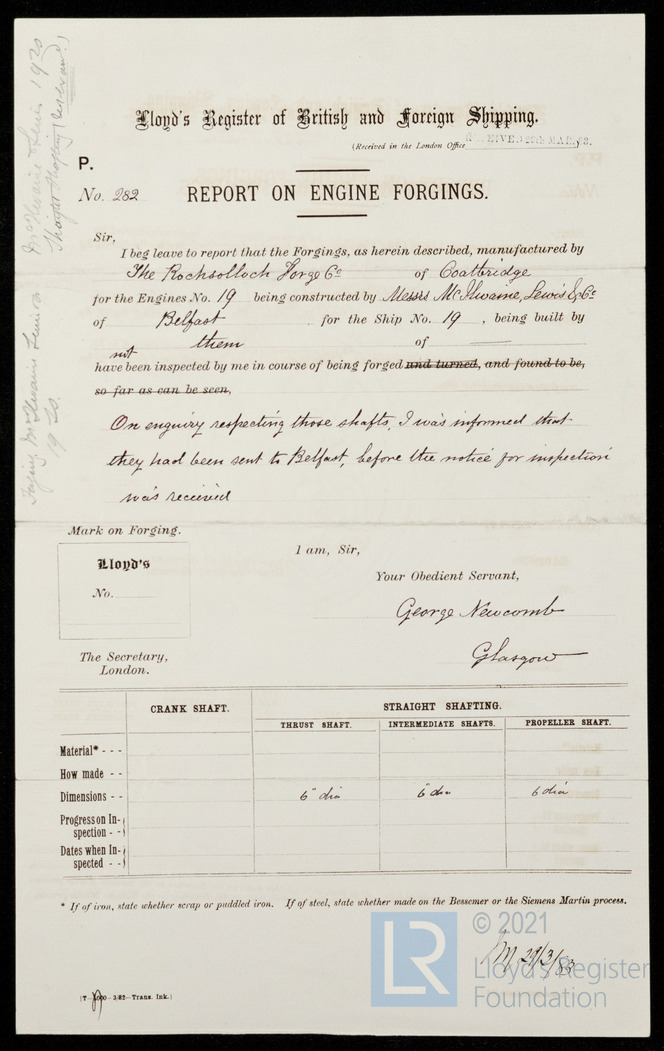 Lloyd's Register of British and Foreign Shipping.
(Received in the London Office
P.
No. 282
REPORT ON ENGINE FORGINGS.
Sir,
I beg leave to report that the Forgings, as herein described, manufactured by
The Rochsolloch Forge Co of Coatbridge
for the Engines No. 19 being constructed by Messrs McIlwaine, Lewis & Co
of Belfast for the Ship No. 19, being built by
them of —
not
have been inspected by me in course of being forged and turned, and found to be,
so far as can be seen,
On enquiry respecting those shafts, I was informed that
they had been sent to Belfast, before the notice for inspection
was received
Mark on Forging.
Lloyd's
No.
I am, Sir,
Your Obedient Servant,
George Newcomb
Glasgow
The Secretary,
London.
CRANK SHAFT.
STRAIGHT SHAFTING.
THRUST SHAFT. INTERMEDIATE SHAFTS. PROPELLER SHAFT.
Material* - - -
How made - -
Dimensions - - 6" dia 6" dia 6 dia
Progress on In-
spection - -
Dates when In-
spected - -
* If of iron, state whether scrap or puddled iron. If of steel, state whether made on the Bessemer or the Siemens Martin process.
29/3/83
LR
© 2021
Lloyd's Register
Foundation
3/82—Trans. Ink.)